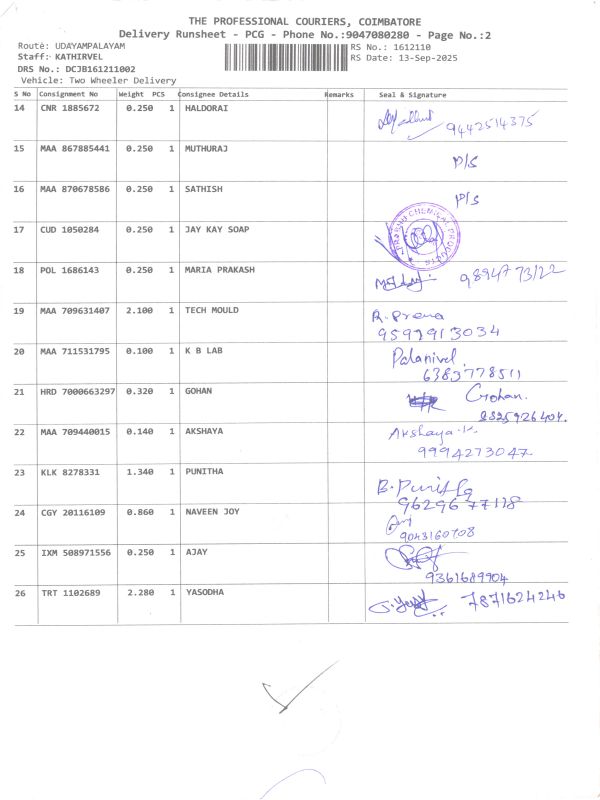 THE PROFESSIONAL COURIERS, COIMBATORE
Delivery Runsheet - PCG - Phone No.:9047080280 - Page No.:2
Route: UDAYAMPALAYAM
Staff: KATHIRVEL
DRS No.: DCJB161211002
Vehicle: Two Wheeler Delivery
RS No.: 1612110
RS Date: 13-Sep-2025
S No Consignment No Weight PCS Consignee Details Remarks Seal & Signature
14 CNR 1885672 0.250 1 HALDORAI 9442514375
15 MAA 867885441 0.250 1 MUTHURAJ P/S
16 MAA 870678586 0.250 1 SATHISH P/S
17 CUD 1050284 0.250 1 JAY KAY SOAP PRABHU CHEMICAL PRODUCTS
18 POL 1686143 0.250 1 MARIA PRAKASH
19 MAA 709631407 2.100 1 TECH MOULD R. Prema
9592913034
20 MAA 711531795 0.100 1 K B LAB Palanivel
6383778511
21 HRD 7000663297 0.320 1 GOHAN Gohan.
22 MAA 709440015 0.140 1 AKSHAYA Akshaya.K.
9994273047
23 KLK 8278331 1.340 1 PUNITHA B. Punitha
9629677118
24 CGY 20116109 0.860 1 NAVEEN JOY
9043160708
25 IXM 508971556 0.250 1 AJAY
9361689904
26 TRT 1102689 2.280 1 YASODHA 7871624246